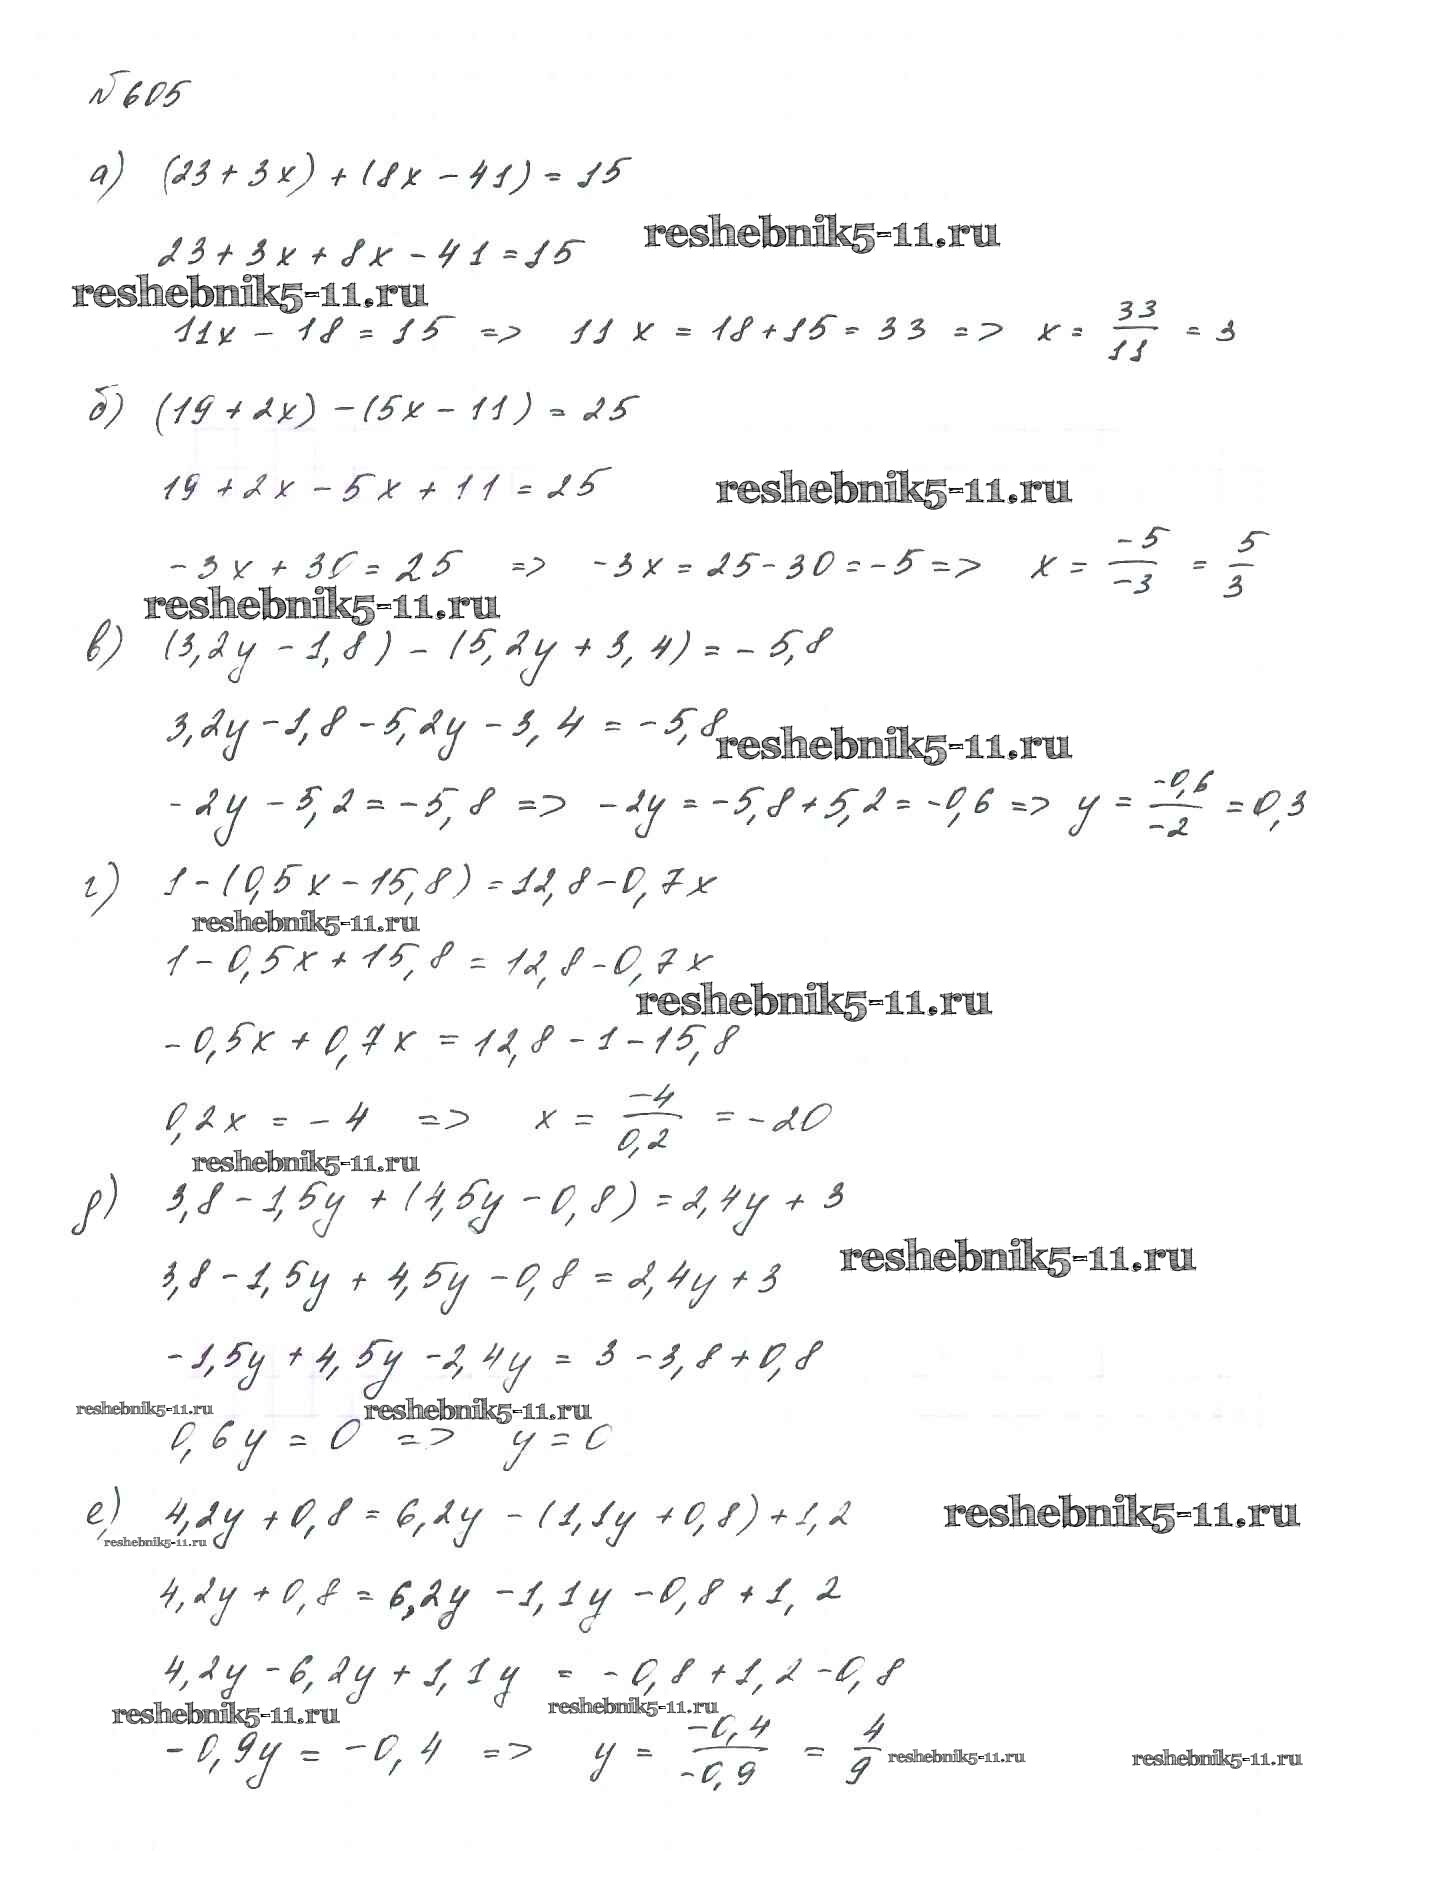 №605
а) (23+3x)+(8x-41)=15
reshebnik5-11.ru
23+3x+8x-41=15
reshebnik5-11.ru
11x-18=15 => 11x=18+15=33 => x=33/11=3
б) (19+2x)-(5x-11)=25
19+2x-5x+11=25
reshebnik5-11.ru
-3x+30=25 => -3x=25-30=-5 => x=-5/-3=5/3
reshebnik5-11.ru
в) (3,2y-1,8)-(5,2y+3,4)=-5,8
3,2y-1,8-5,2y-3,4=-5,8
reshebnik5-11.ru
-2y-5,2=-5,8 => -2y=-5,8+5,2=-0,6 => y=-0,6/-2=0,3
г) 1-(0,5x-15,8)=12,8-0,7x
reshebnik5-11.ru
1-0,5x+15,8=12,8-0,7x
reshebnik5-11.ru
-0,5x+0,7x=12,8-1-15,8
0,2x=-4 => x=-4/0,2=-20
reshebnik5-11.ru
д) 3,8-1,5y+(4,5y-0,8)=2,4y+3
reshebnik5-11.ru
3,8-1,5y+4,5y-0,8=2,4y+3
-1,5y+4,5y-2,4y=3-3,8+0,8
reshebnik5-11.ru reshebnik5-11.ru
0,6y=0 => y=0
е) 4,2y+0,8=6,2y-(1,1y+0,8)+1,2
reshebnik5-11.ru
reshebnik5-11.ru
4,2y+0,8=6,2y-1,1y-0,8+1,2
4,2y-6,2y+1,1y=-0,8+1,2-0,8
reshebnik5-11.ru reshebnik5-11.ru
-0,9y=-0,4 => y=-0,4/-0,9=4/9
reshebnik5-11.ru reshebnik5-11.ru